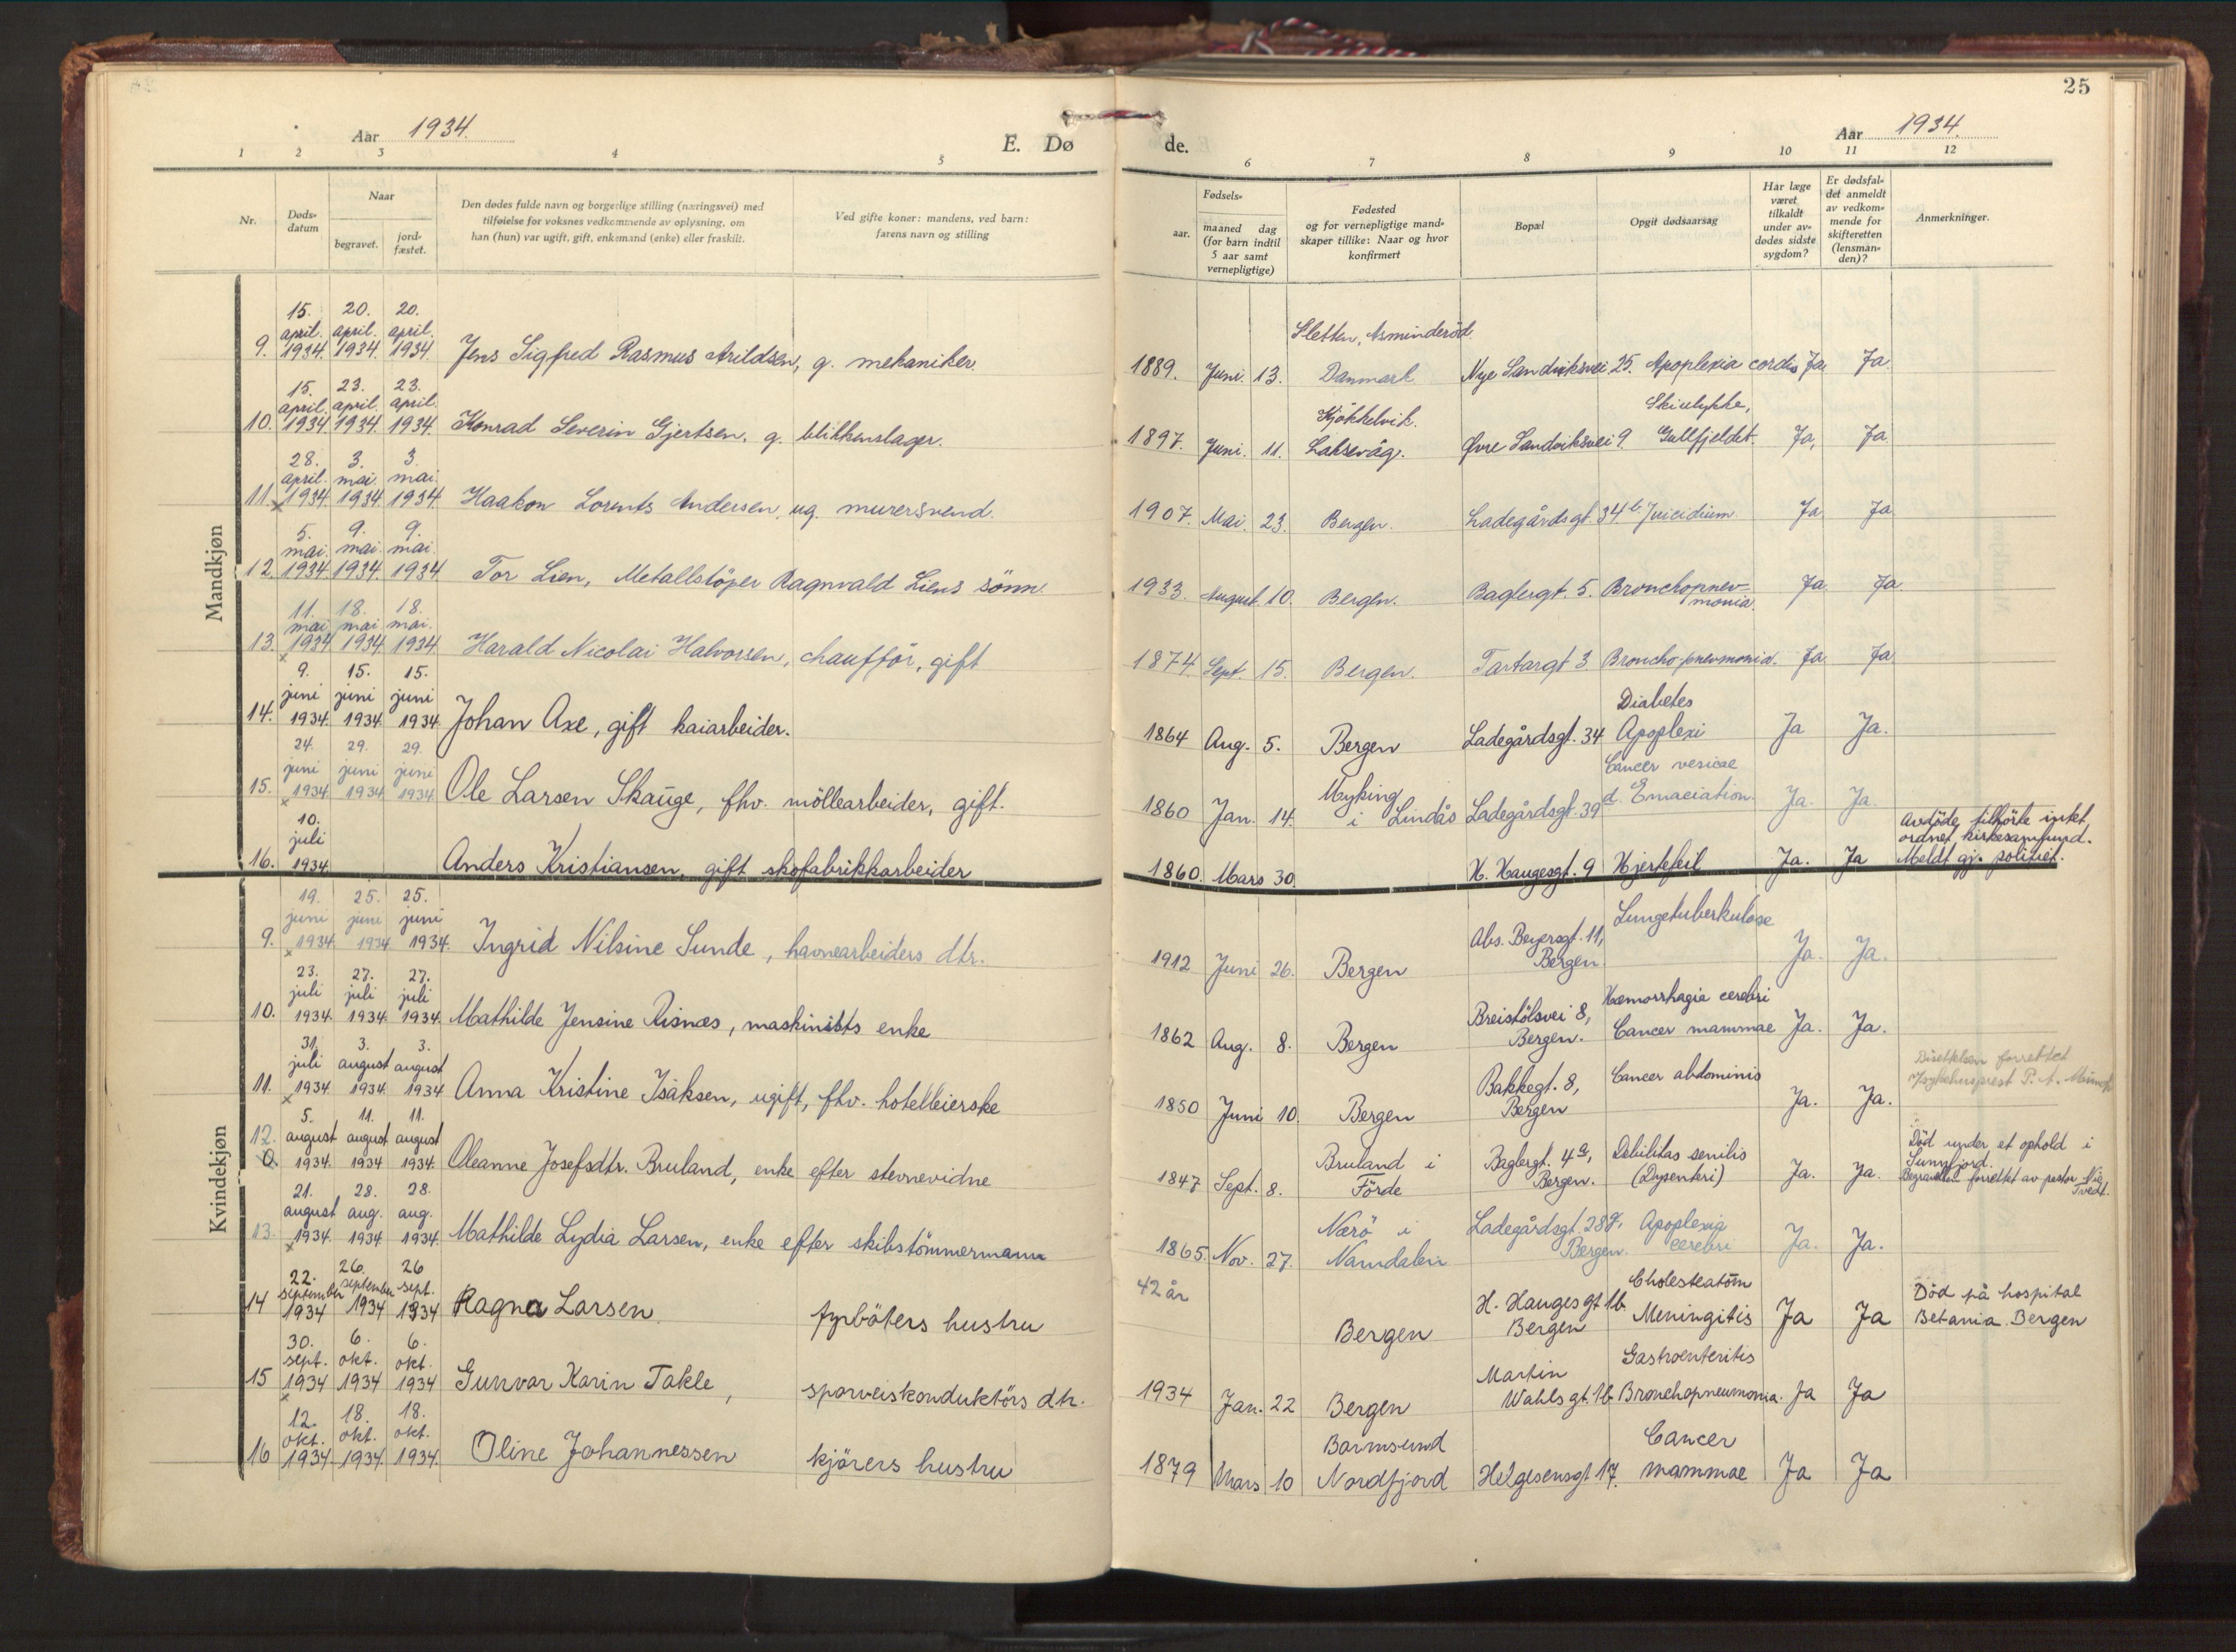 25
Aar 1934.
E. Dø
de.
Aar 1934.
1 2 3 4 5 6 7 8 9 10 11 12
Nr.
Døds-
datum
Naar
begravet.
jord-
fæstet.
Den dødes fulde navn og borgerlige stilling (næringsvei) med
tilføielse for voksnes vedkommende av oplysning, om
han (hun) var ugift, gift, enkemand (enke) eller fraskilt.
Ved gifte koner: mandens, ved barn:
farens navn og stilling
Fødsels-
aar.
maaned dag
(for barn indtil
5 aar samt
vernepligtige)
Fødested
og for vernepligtige mand-
skaper tillike: Naar og hvor
konfirmert
Bopæl
Opgit dødsaarsag
Har læge
været
tilkaldt
under av-
dødes sidste
sygdom?
Er dødsfal-
det anmeldt
av vedkom-
mende for
skifteretten
(lensman-
den)?
Anmerkninger.
Mandkjøn
15. 20. 20.
april. april. april. Sletten, Asminderöd.
9. 1934. 1934. 1934. Jens Sigfred Rasmus Arildsen, g. mekaniker. 1889. Juni. 13. Danmark Nye Sandviksvei 25. Apoplexia cordis Ja Ja
15. 23. 23.
april. april. april. Kjökkelvik. Skiulykke,
10. 1934 1934. 1934. Konrad Severin Gjertsen, g. blikkenslager. 1897. Juni. 11. Laksevåg. Øvre Sandviksvei 9. Gullfjeldet. Ja, Ja
28. 3. 3.
april. mai. mai.
11. x 1934 1934 1934 Haakon Lorents Andersen, ug. murersvend. 1907. Mai. 23. Bergen. Ladegårdsgt. 34 b. Suicidium. Ja Ja
5. 9. 9.
mai. mai. mai.
12. 1934. 1934. 1934 Tor Lien, Metallstöper Ragnvald Liens sönn. 1933. August. 10. Bergen. Baglergt. 5. Bronchopnev-
monia. Ja Ja
11. 18. 18.
mai mai mai.
13. x 1934 1934 1934 Harald Nicolai Halvorsen, chaufför, gift 1874. Sept. 15. Bergen. Tartargt 3 Bronchopnevmonia. Ja Ja
9. 15. 15.
juni juni juni Diabetes
14. 1934. 1934. 1934 Johan Axe, gift kaiarbeider. 1864 Aug. 5. Bergen Ladegårdsgt. 34 Apoplexi Ja Ja.
24. 29. 29.
juni juni juni Myking Cancer vesicae
15. x 1934 1934 1934 Ole Larsen Skauge, fhv. möllearbeider, gift. 1860 Jan. 14. i Lindås Ladegårdsgt. 39 d. Emaciation. Ja. Ja.
10.
juli
16. 1934. Anders Kristiansen, gift skofabrikkarbeider 1860. Mars 30. H. Haugesgt. 9 Hjertefeil Ja. Ja
Avdöde tilhörte intet
ordnet kirkesamfund.
Meldt gj. politiet.
Kvindekjøn
19. 25. 25.
juni juni juni Abs. Beyersgt. 11, Lungetuberkulose
9. x 1934 1934 1934. Ingrid Nilsine Sunde, havnearbeiders dtr. 1912 Juni 26. Bergen Bergen. Ja. Ja.
23. 27. 27.
juli juli juli Breistölsvei 8, Hæmorrhagia cerebri
10. 1934. 1934. 1934. Mathilde Jensine Risnæs, maskinists enke 1862 Aug. 8. Bergen Bergen. Cancer mammae Ja. Ja.
31. 3. 3.
juli august august Bakkegt. 8, Cancer abdominis
11. x 1934 1934. 1934 Anna Kristine Isaksen, ugift, fhv. hotelleierske 1850 Juni 10. Bergen Bergen Ja. Ja.
Bisettelsen forrettet
5. 11. 11.
12. august august august Bruland i Baglergt. 4a, Debilitas senilis
0. 1934. 1934 1934. Oleanne Josefsdtr. Bruland, enke efter stevnevidne 1847 Sept. 8. Förde Bergen. (Dysenteri) Ja. Ja.
Död under et ophold i
Sunnfjord.
Begravelsen forrettet av pastor
21. 28. 28.
august aug. aug. Nærö i Ladegårdsgt. 28 Apoplexia
13. x 1934. 1934 1934. Mathilde Lydia Larsen, enke efter skibstömmermann 1865. Nov. 27. Namdalen Bergen. cerebri Ja. Ja.
22. 26. 26
september september sept. 42 år H. Hauges gt 1b Cholesteatöm Död på hospital
14 1934 1934 1934 Ragna Larsen fyrböters hustru Bergen Bergen Meningitis Ja Ja Betania. Bergen
30. 6. 6.
sept. okt. okt. Martin Gastroenteritis
15 x 1934 1934 1934 Gunvor Karin Takle, sporveiskonduktörs dtr. 1934 Jan. 22 Bergen Wahls gt. 1b Bronchopneumonia. Ja Ja
12. 18. 18.
okt. okt. okt. Barmsund Cancer
16 1934 1934 1934. Oline Johannessen kjörers hustru 1879 Mars 10 Nordfjord Helgesensgt 17. mammae Ja Ja